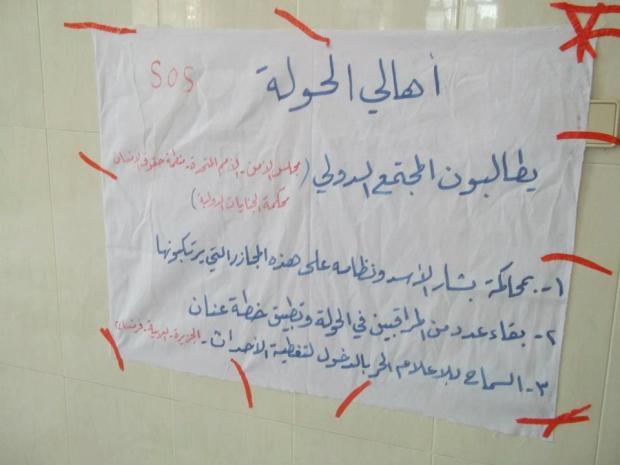 SOS
أهالي الحولة
يطالبون المجتمع الدولي (مجلس الأمن - الأمم المتحدة - منظمة حقوق الإنسان
محكمة الجنايات الدولية)
١- بمحاكمة بشار الأسد ونظامه على هذه المجازر التي يرتكبونها
٢- بقاء عدد من المراقبين في الحولة وتطبيق خطة عنان
٣- السماح للإعلام الحر بالدخول لتغطية الأحداث - الجزيرة - العربية - فرنسا٢٤